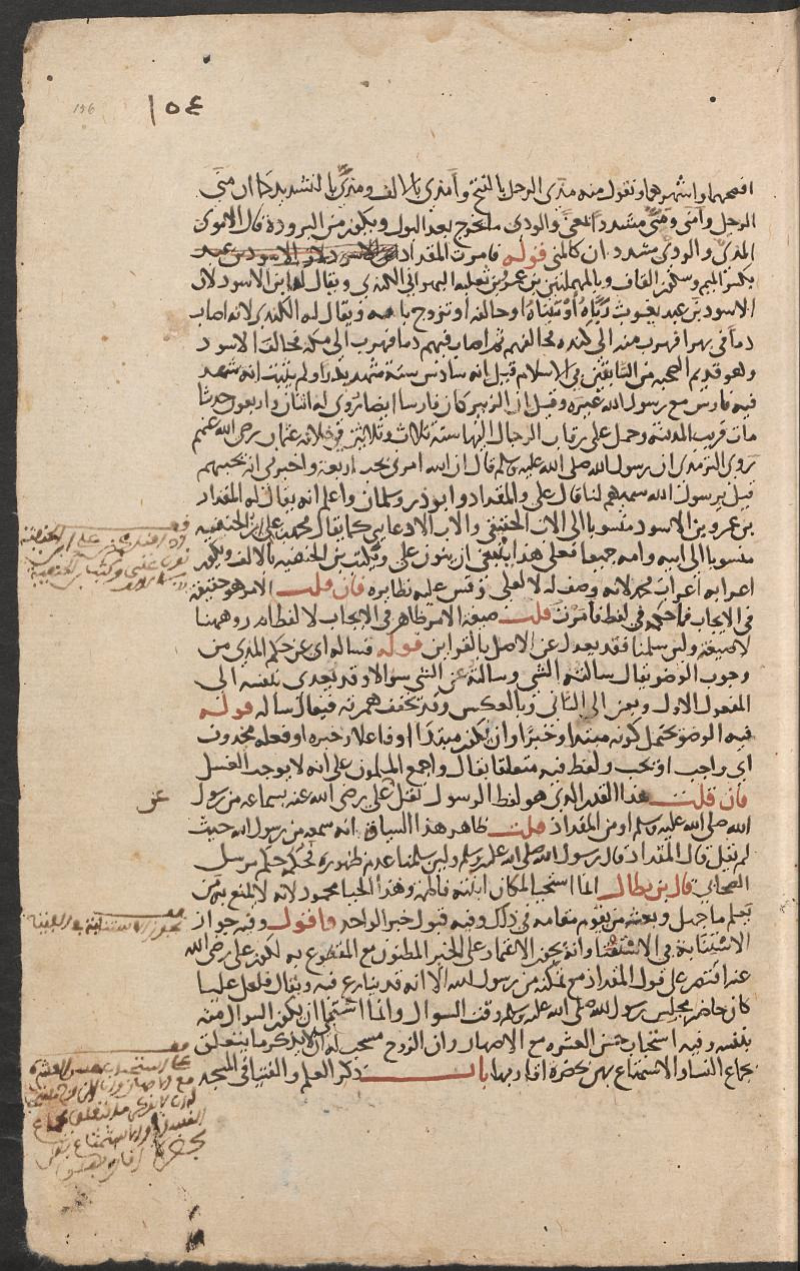 156
١٥٤
افصحها واشهرها وتقول منه مذى الرجل بالفتح وأمذى بالالف ومذّى بالتشديد كما ان منى
الرجل وأمنى ومنّى مشددا بمعنى والودى ما يخرج بعد البول ويكون من البرودة قال الاموى
المذي والودي مشددان كالمنى قوله فامرت المقداد
بكسر الميم وسكون القاف وبالمهملتين بن عمرو بن ثعلبه البهراني الكندي ويقال له ابن الاسود لان
الاسود بن عبد يغوث ربّاه او تبناه او حالفه او تزوج بامه ويقال له الكندي لانه اصاب
دما في بهرا فهرب منه الى كنده فحالفهم ثم اصاب فيهم دما فهرب الى مكة فحالف الاسود
وهو قديم الصحبه من السابقين في الاسلام قيل انه سادس ستة شهد بدرا ولم يثبت انه شهد
فيه فارس مع رسول الله غيره وقيل ان الزبير كان فارسا ايضا روي له اثنان واربعون حديثا
مات قريب المدينة وحمل على رقاب الرجال اليها سنة ثلاث وثلاثين في خلافة عثمان رضى الله عنهم
روى الترمذى ان رسول الله صلى الله عليه وسلم قال ان الله امرني بحب اربعة واخبرني انه يحبهم
قيل يرسول الله سمهم لنا قال على والمقداد وابوذر وسلمان واعلم انه يقال له المقداد
بن عمرو بن الاسود منسوبا الى الاب الحقيقى والاب الادعايى كما يقال محمد بن على بن الحنفيه
منسوبا الى ابيه وامه جميعا فعلى هذا ينبغى ان ينون على ويكتب بن الحنفيه بالالف ويكون
اعرابه اعراب محمد لانه وصف له لا لعلي وقس عليه نظايره فان قلت الامر هو حقيقة
في الايجاب فما حكمه في لفظ فامرت قلت صيغة الامر ظاهر في الايجاب لا لفظ امر وههنا
لا صيغة ولئن سلمنا فقد يعدل عن الاصل بالقراين قوله فساله اى عن حكم المذي من
وجوب الوضو يقال سالته الشي وسالته عن الشى سوالا وقد يعدى بنفسه الى
المفعول الاول وبعن الى الثانى وبالعكس وقد تخفف همزته فيقال ساله قوله
فيه الوضو يحتمل كونه مبتدا وخبرا وان يكون مبتدا او فاعلا وخبره او فعله محذوف
اي واجب او يجب ولفظ فيه متعلقا بقال واجمع المسلمون على انه لا يوجب الغسل
فان قلت هذا القدر الذي هو لفظ الرسول نقل على رضى الله عنه بسماعه من رسول
عن
الله صلى الله عليه وسلم او من المقداد قلت ظاهر هذا السياق انه سمعه من رسول الله حيث
لم يقل قال المقداد قال رسول الله صلى الله عليه وسلم ولئن سلمنا عدم ظهوره فحكمه حكم مرسل
الصحابي قال بن بطال انما استحيا لمكان ابنته فاطمة وهذا الحيا محمود لانه لا يمنع به من
تعلم ما جهل وبعث من يقوم مقامه في ذلك وفيه قبول خبر الواحد واقول وفيه جواز
الاستنابة في الاستفتا وانه يجوز الاعتماد على الخبر المظنون مع المقطوع به لكون على رضى الله
عنه اقتصر على قول المقداد مع تمكنه من رسول الله الا انه قد ينازع فيه ويقال فلعل عليا
كان حاضر مجلس رسول الله صلى الله عليه وسلم وقت السوال وانما استحيا ان يكون السوال منه
بنفسه وفيه استحباب حسن العشره مع الاصهار وان الزوج يستحب له ان لا يذكر ما يتعلق
بجماع النسا والاستمتاع بهن بحضرة اقاربها باب ذكر العلم والفتيا في المسجد